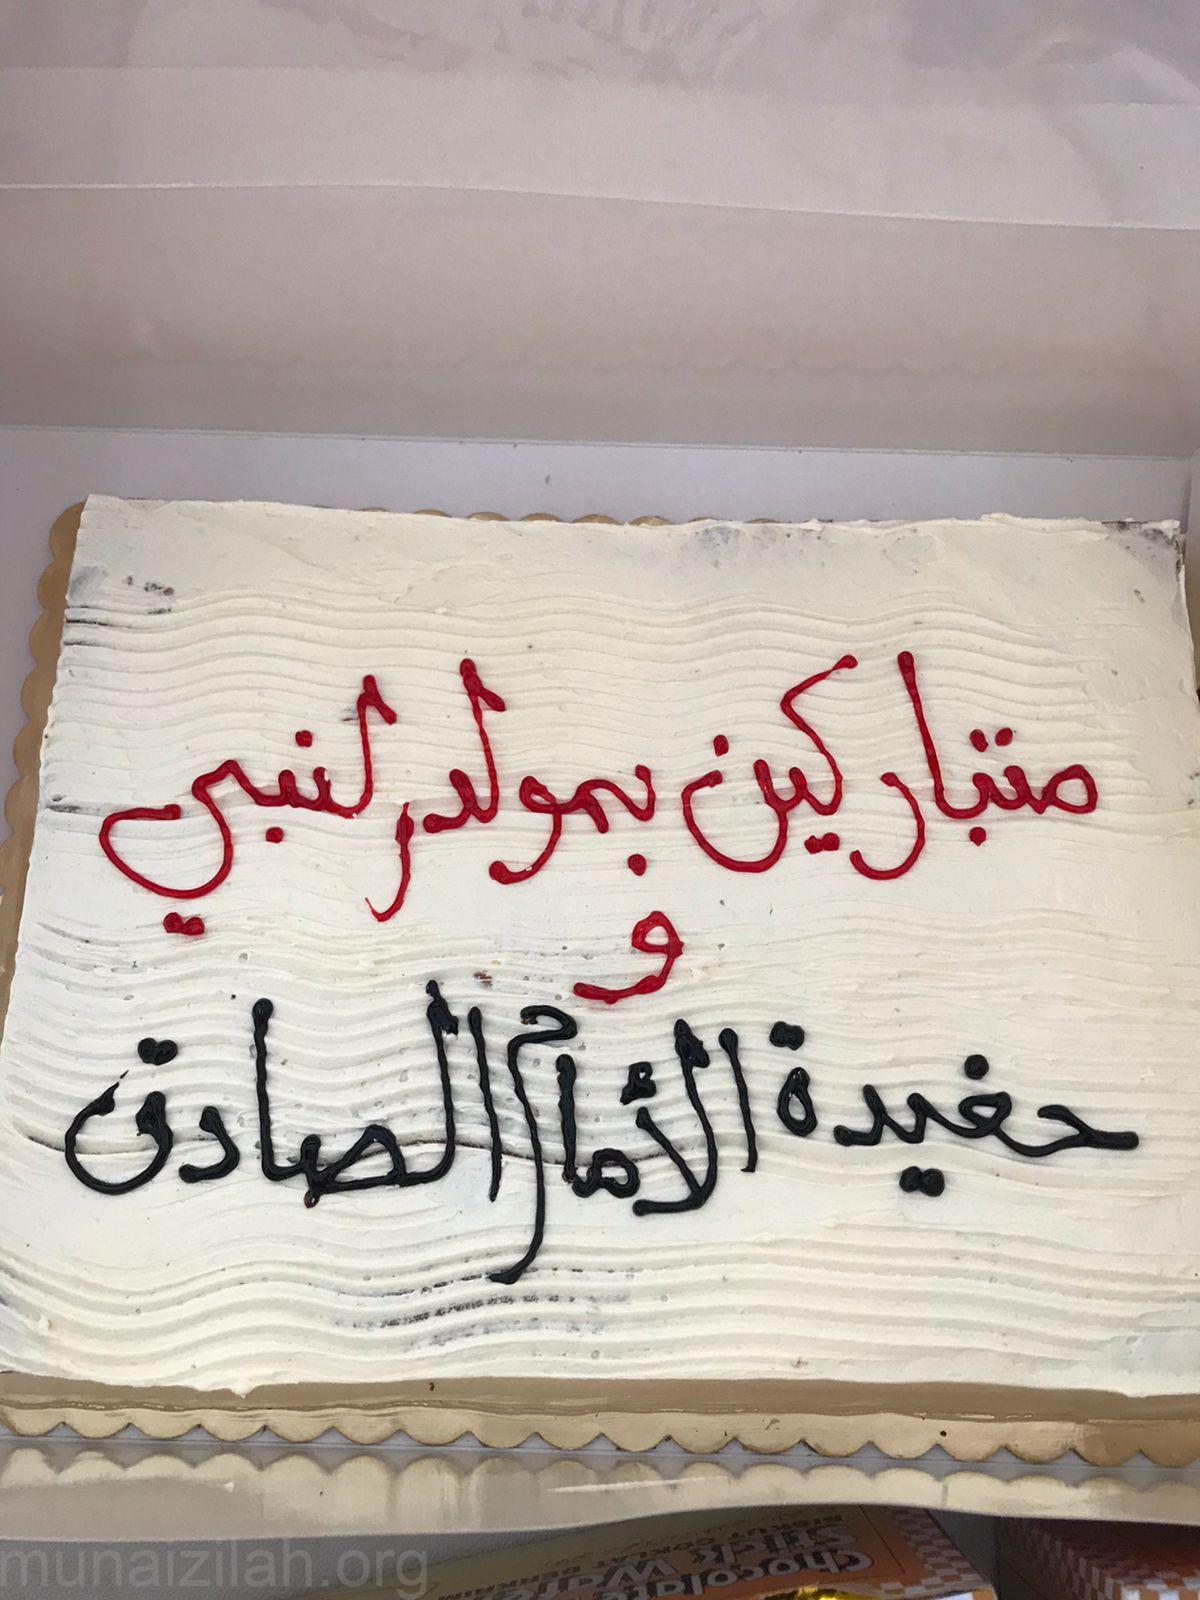 متباركين بمولد النبي
و
حفيدة الأمام الصادق
munaizilah.org
Chocolate
Stick Wafer
BISKUT
COKLAT